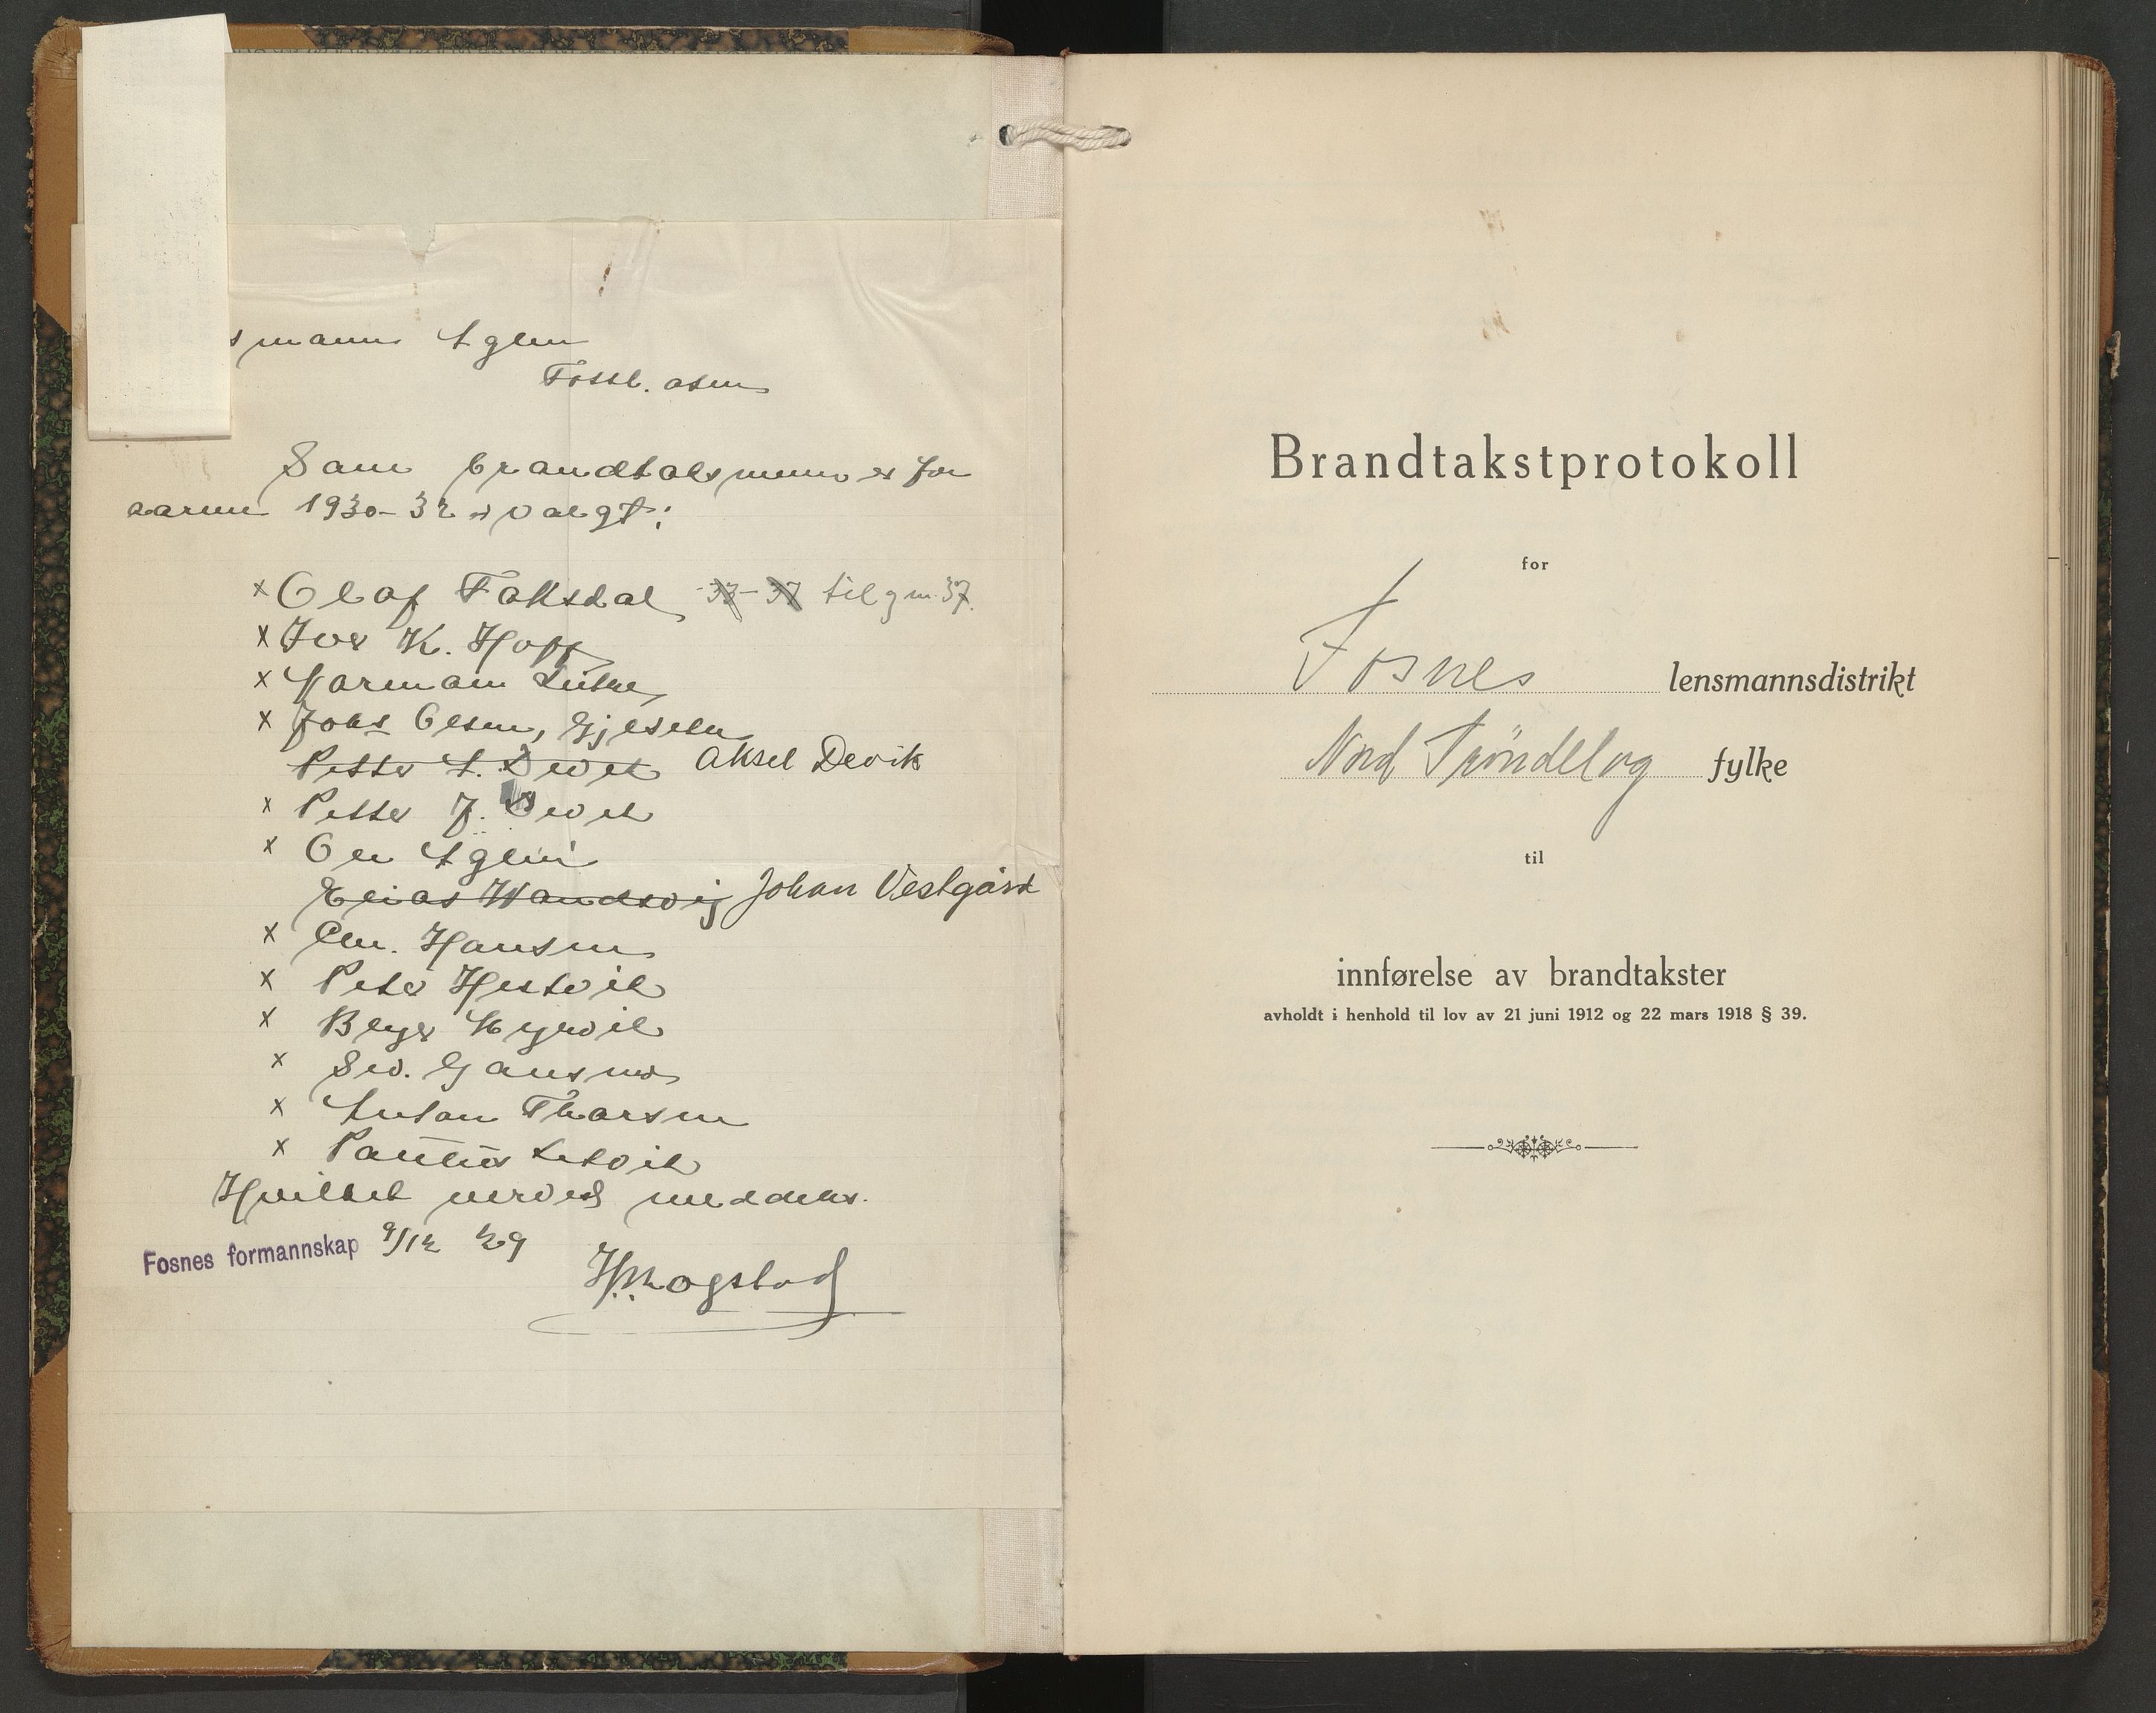 smann Aglen
Fossl. asen
Som brandtaksmenn er for
aarene 1930-32 er valgt:
x Olaf Faksdal 33-37 til gm. 37.
x Iver K. Hoff
x Harman
x Johs Olsen, Gjeselen
Petter A. Devik Aksel Devik
x Petter J. Devik
x Ole Aglen
Elias Wandsvig Johan Vestgård
x Chr. Hansen
x Peter Hestvik
x
x Sev. Gansmo
x Anton Thorsen
x Paulus Setvik
Hvilket herved meddeles.
Fosnes formannskap 9/12 29
Brandtakstprotokoll
for
Fosnes lensmannsdistrikt
Nord Trøndelag fylke
til
innførelse av brandtakster
avholdt i henhold til lov av 21 juni 1912 og 22 mars 1918 § 39.